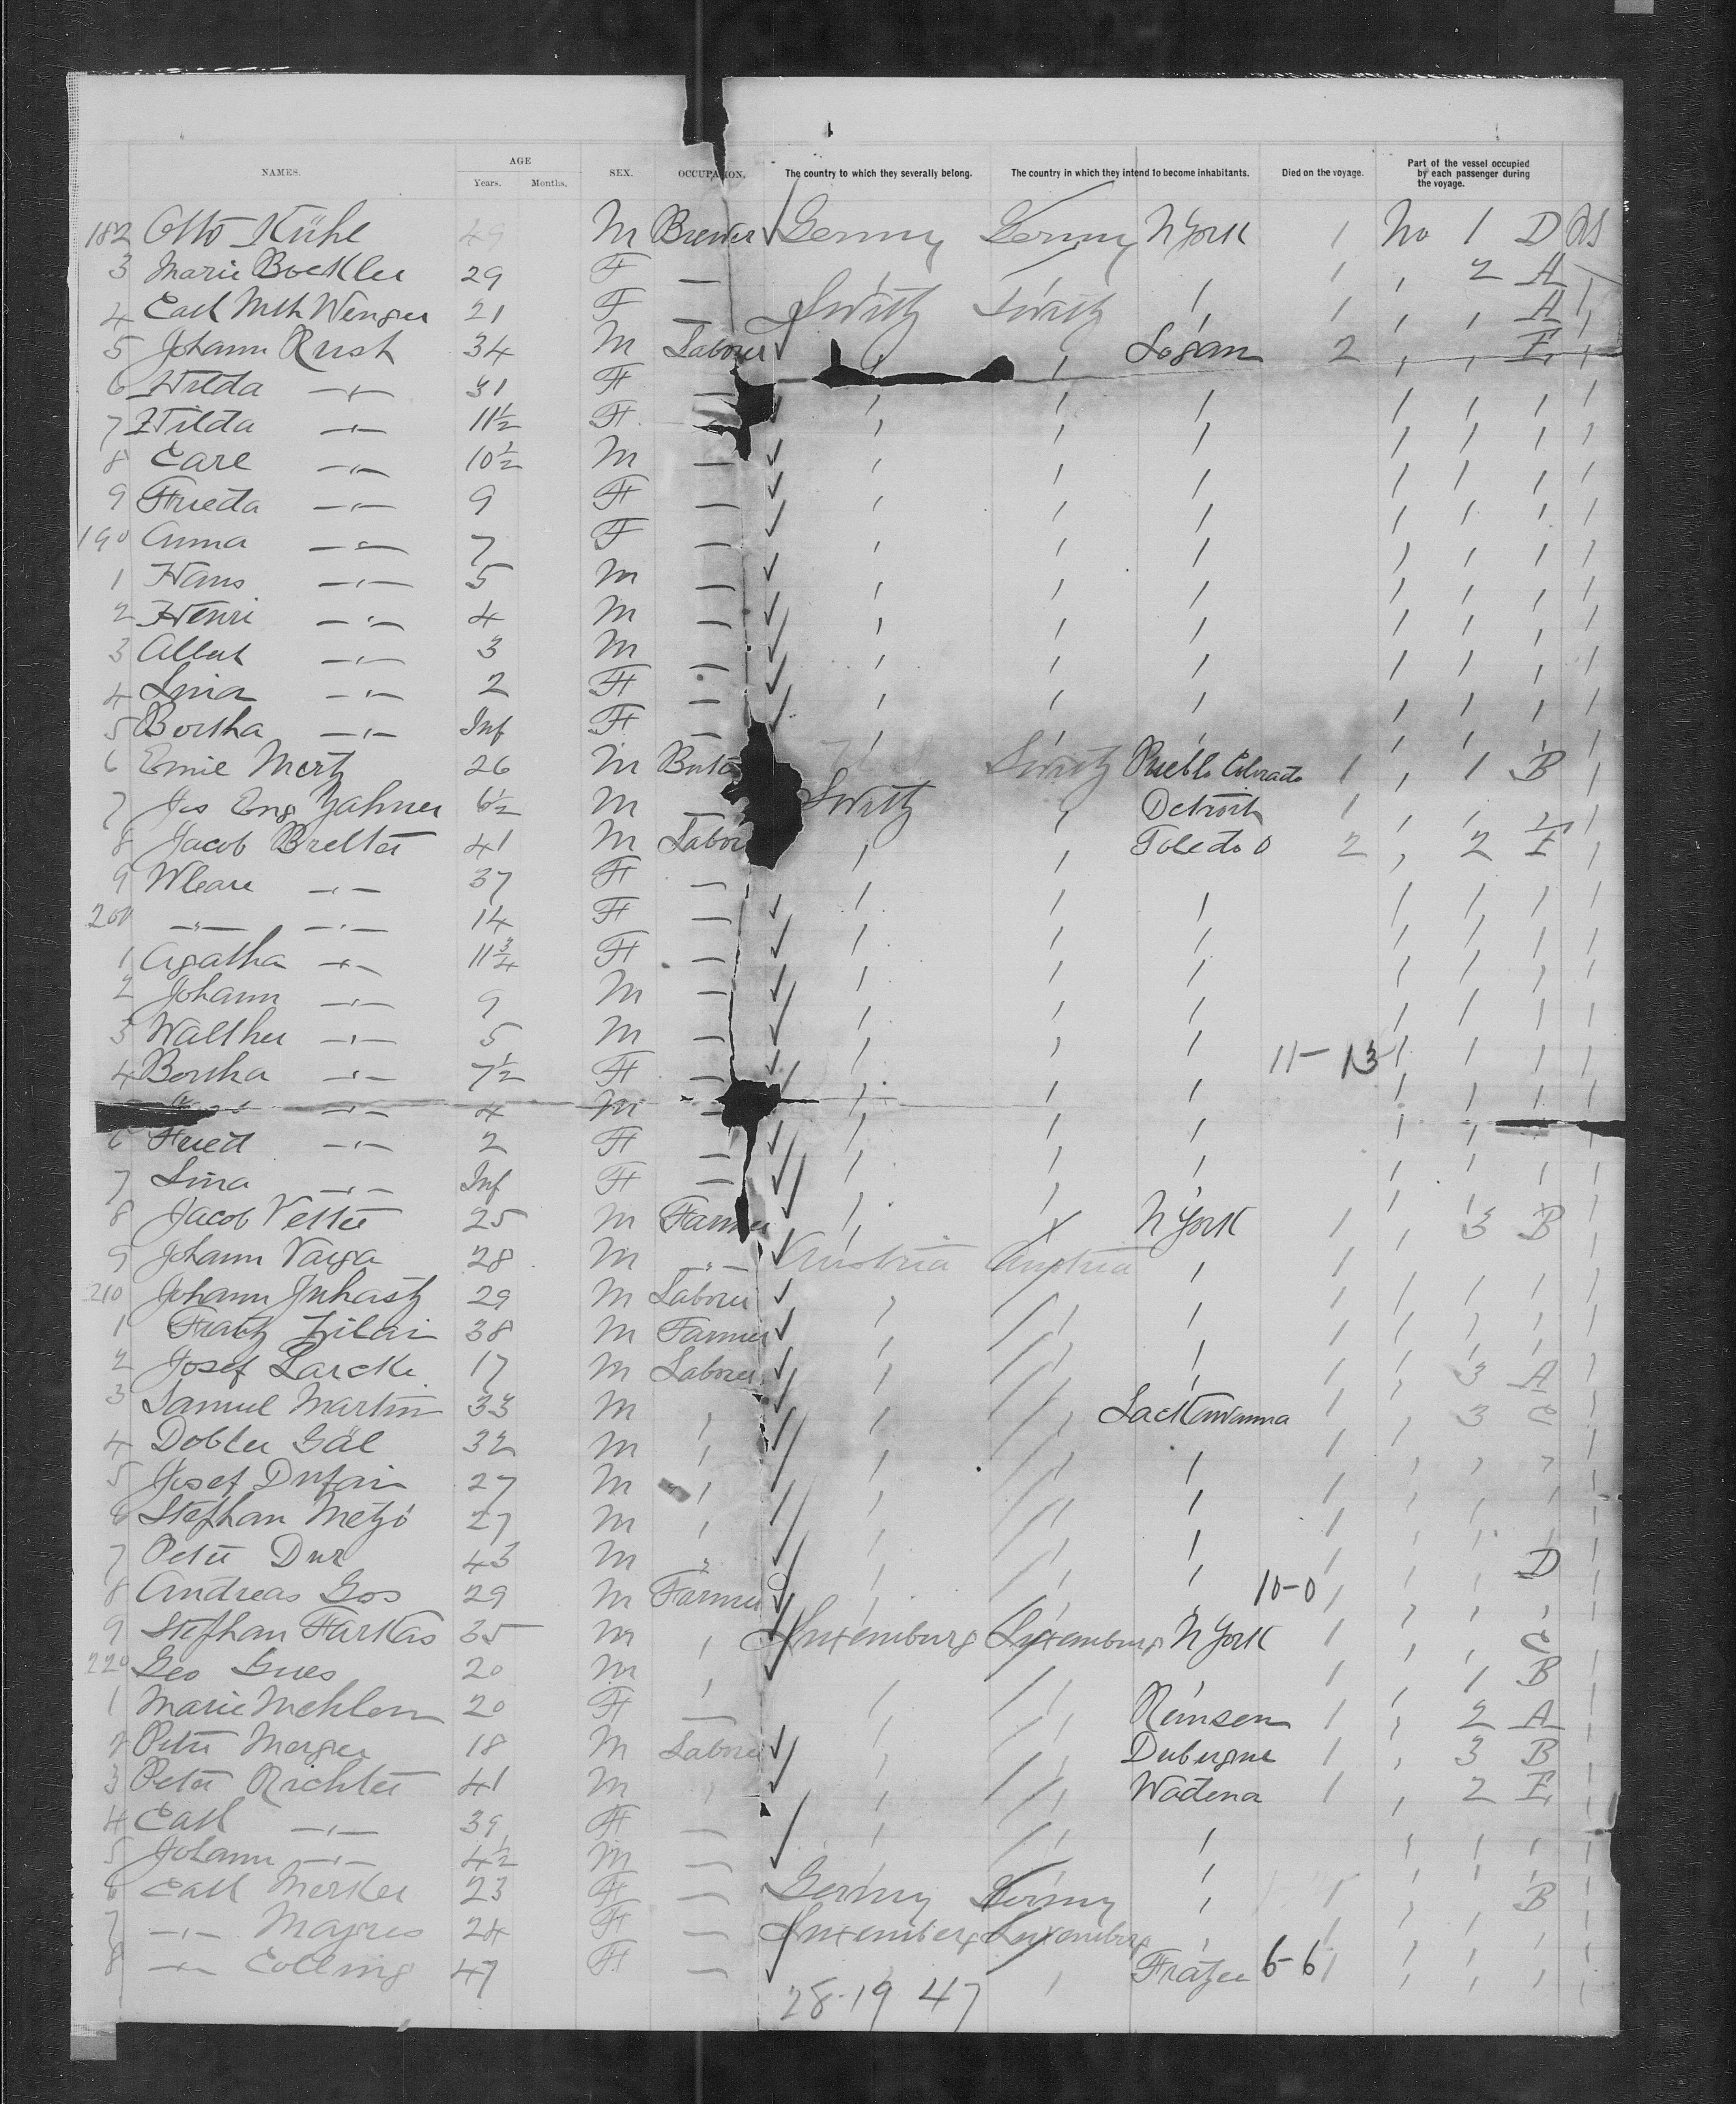 NAMES. AGE Years. Months. SEX. OCCUPATION. The country to which they severally belong. The country in which they intend to become inhabitants. Died on the voyage. Part of the vessel occupied by each passenger during the voyage.
182 Otto Kühl 49 M Brewer Germny Germny N York 1 No 1 D US
3 Marie Boekler 29 F — 1 2 A
4 Cath Mth Wenger 21 F — Switz Switz 1 A
5 Johann Rush 34 M Laborer Logan 2 E
6 Hilda —"— 31 F —
7 Hilda —"— 11½ F —
8 Carl —"— 10½ M —
9 Frieda —"— 9 F —
190 Anna —"— 7 F —
1 Hans —"— 5 M —
2 Henri —"— 4 M —
3 Albert —"— 3 M —
4 Lina —"— 2 F —
5 Bertha —"— Inf F —
6 Emil Mertz 26 M Switz Pueblo Colorado 1 1 B
7 Jos Eng Zahner 6½ M — Switz Detroit 1
8 Jacob 41 M Labor Toledo O 2 2 E
9 —"— 37 F —
200 —"— —"— 14 F —
1 Agatha —"— 11¾ F —
2 Johann —"— 9 M —
3 Walther —"— 5 M —
4 Bertha —"— 7½ F — 11-13
—"— 4 M —
6 Fried —"— 2 F —
7 Lina —"— Inf F —
8 Jacob Vetter 25 M Farmer N York 1 3 B
9 Johann Varga 28 M —"— Austria Austria 1
210 Johann Juhasz 29 M Laborer
1 Fratz Zilai 38 M Farmer
2 Josef 17 M Laborer 3 A
3 Samuel Martin 33 M Lackawanna 3 C
4 Gál 32 M
5 Josef 27 M
6 Stefhan 27 M
7 Peter Dur 43 M D
8 Andreas Gos 29 M Farmer 10-0
9 Stefhan Farkas 35 M Luxemburg Luxemburg N York 1 C
220 Geo 20 M 1 B
1 Marie Mehlen 20 F — Remsen 1 2 A
2 Peter Merges 18 M Laborer 1 3 B
3 Peter Richter 41 M Wadena 1 2 E
4 Cath —"— 39 F —
5 Johann —"— 4½ M —
6 Cath Merkes 23 F — Germny Germny 1 B
7 —"— Majres 24 F — Luxemberg Luxemburg
8 —"— Colling 47 F — Frazee 6-6 1
28-19 47